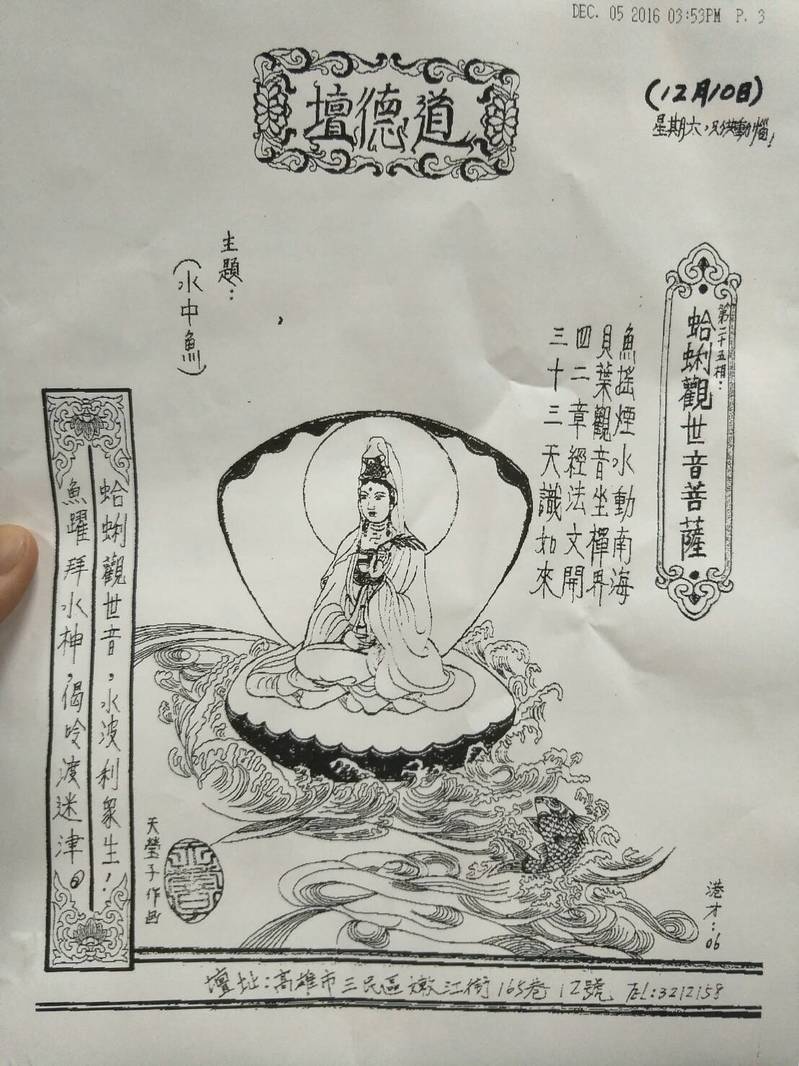 DEC. 05 2016 03:53PM P. 3
道德壇
(12月10日)
星期六,只供動惱!
第二十五相:
蛤蜊觀世音菩薩
魚搖煙水動南海
貝葉觀音坐禪界
四二章經法文開
三十三天識如來
主題:
(水中魚)
蛤蜊觀世音,水波利眾生!
魚躍拜水神,偈吟渡迷津。
天瑩子作画
港才:06
壇址:高雄市三民區嫩江街165巷12號 TEL:3212158